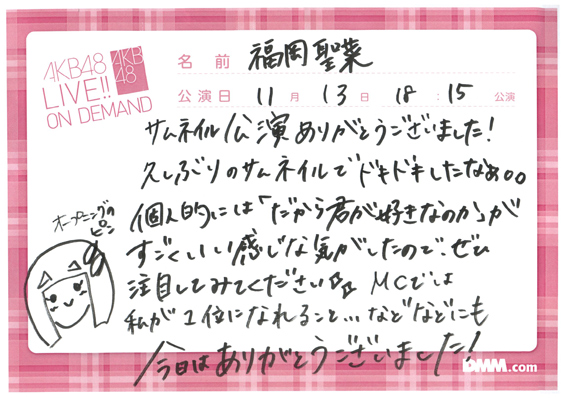 AKB48
LIVE!!
ON DEMAND
AKB
48
名前 福岡聖菜
公演日 11月13日 18:15公演
サムネイル公演ありがとうございました!
久しぶりのサムネイルでドキドキしたなぁ。。
個人的には「だから君が好きなのか」が
すごくいい感じな気がしたので、ぜひ
注目してみてください MCでは
私が1位になれること…などなどにも
今日はありがとうございました!
オープニングの
ピン
DMM.com